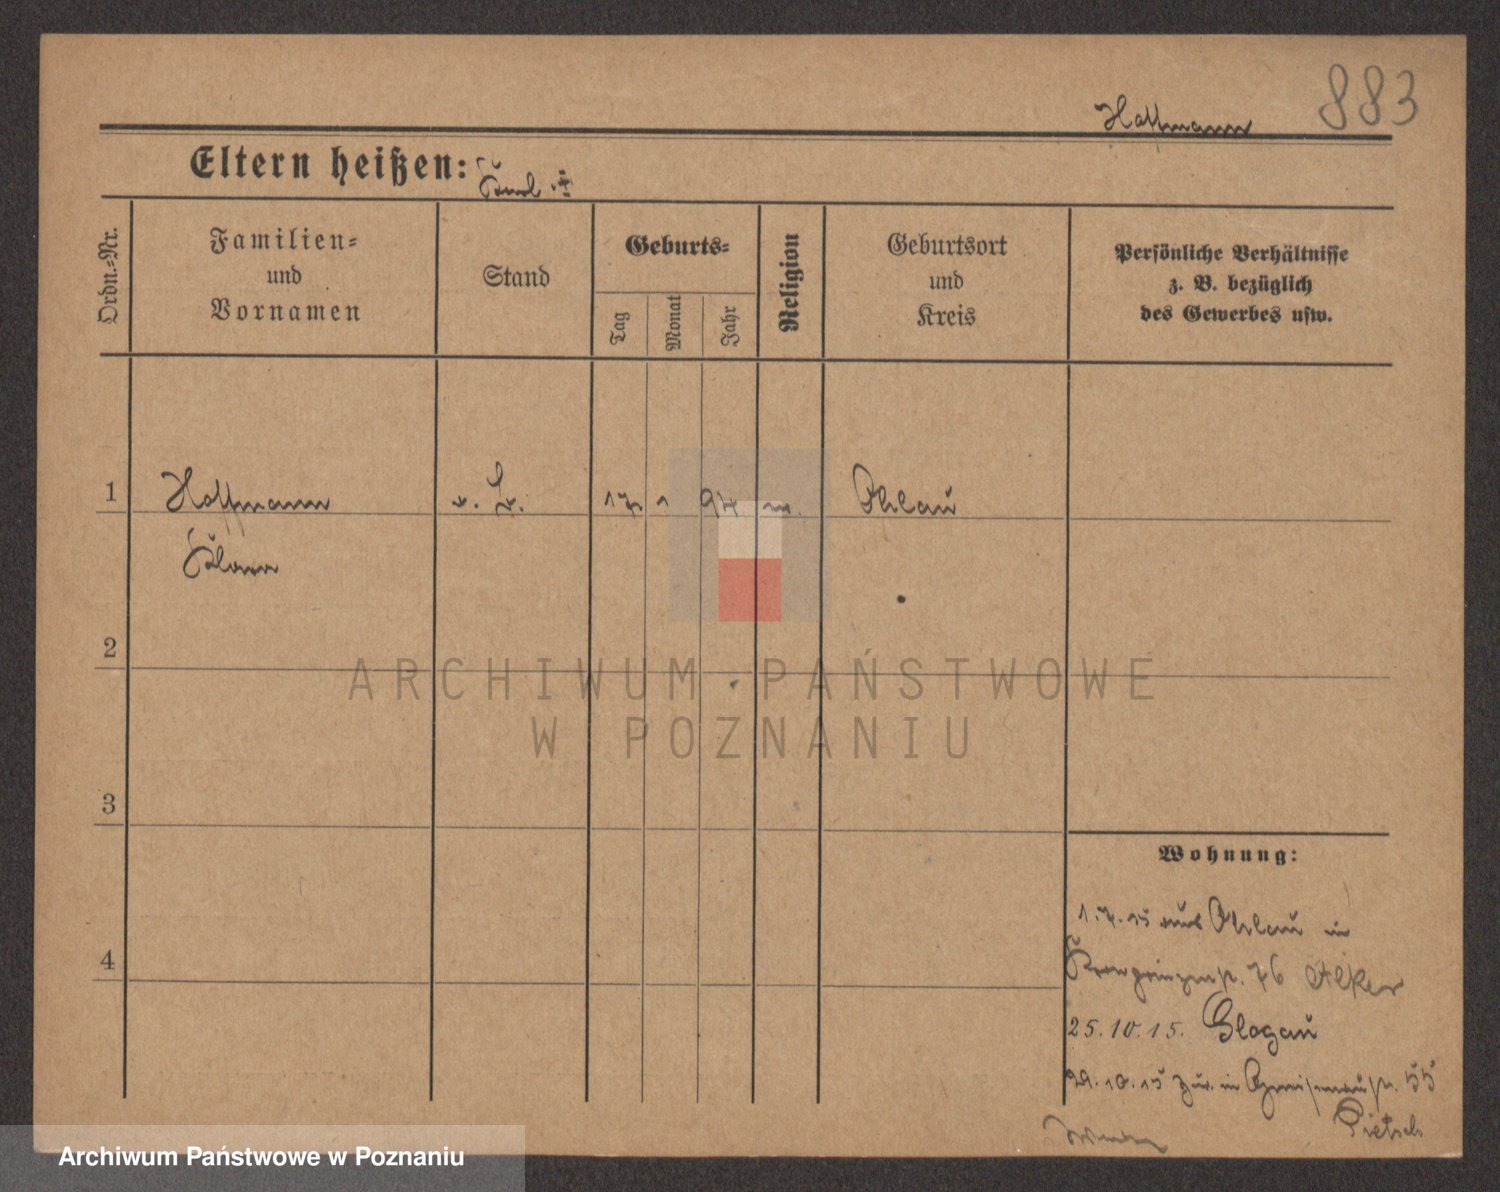 883
Hoffmann
Eltern heißen: Paul
Ordn.-Nr.
Familien-
und
Vornamen
Stand
Geburts-
Tag
Monat
Jahr
Religion
Geburtsort
und
Kreis
Persönliche Verhältnisse
z. B. bezüglich
des Gewerbes usw.
1 Hoffmann 17 1 97 Ohlau
2
3
4
Wohnung:
1.7.15 aus Ohlau in
Kronprinzenstr. 76
25.10.15. Glogau
29.10.15 zur. in Gneisenaustr. 55
Pietsch
ARCHIWUM PAŃSTWOWE
W POZNANIU
Archiwum Państwowe w Poznaniu